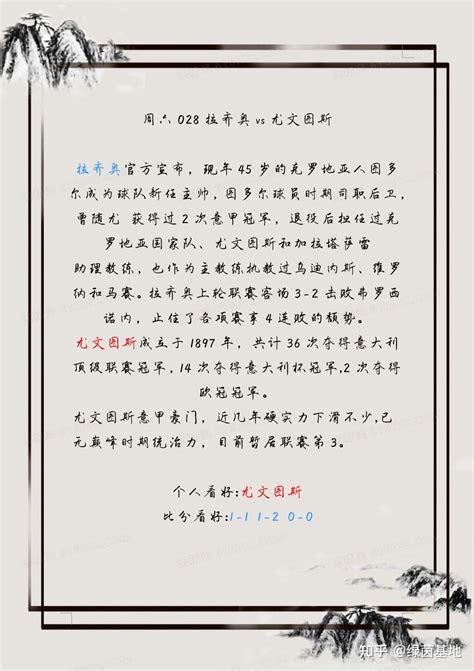 周六 028 拉齐奥 vs 尤文图斯
拉齐奥官方宣布，现年 45 岁的克罗地亚人图多
尔成为球队新任主帅，图多尔球员时期司职后卫，
曾随尤 获得过 2 次意甲冠军，退役后担任过克
罗地亚国家队、尤文图斯和加拉塔萨雷
助理教练，也作为主教练执教过乌迪内斯、维罗
纳和马赛。拉齐奥上轮联赛客场 3-2 击败弗罗西
诺内，止住了各项赛事 4 连败的颓势。
尤文图斯成立于 1897 年，共计 36 次夺得意大利
顶级联赛冠军，14 次夺得意大利杯冠军,2 次夺得
欧冠冠军。
尤文图斯意甲豪门，近几年硬实力下滑不少,已
无巅峰时期统治力，目前暂居联赛第 3。
个人看好:尤文图斯
比分看好:1-1 1-2 0-0
知乎 @绿茵基地